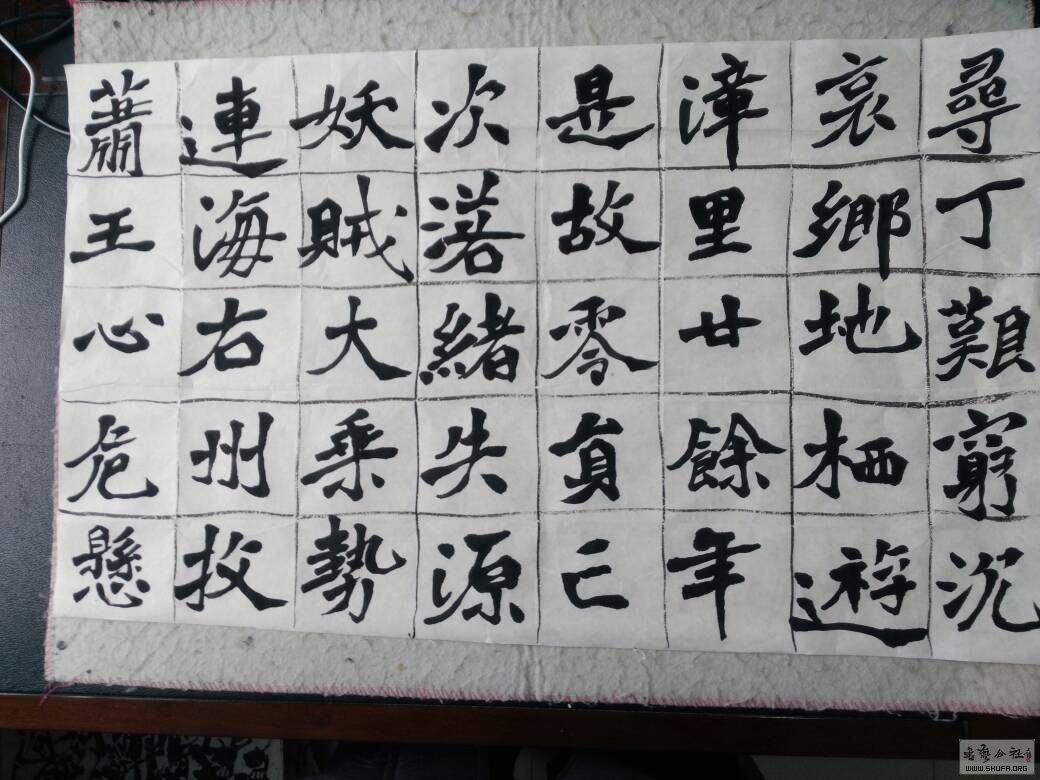 尋丁艱窮沉
哀鄉地栖遊
漳里廿餘年
是故零員已
次落緒失源
妖賊大乘勢
連海右州牧
蕭王心危懸
書藝公社
WWW.SHUFA.ORG